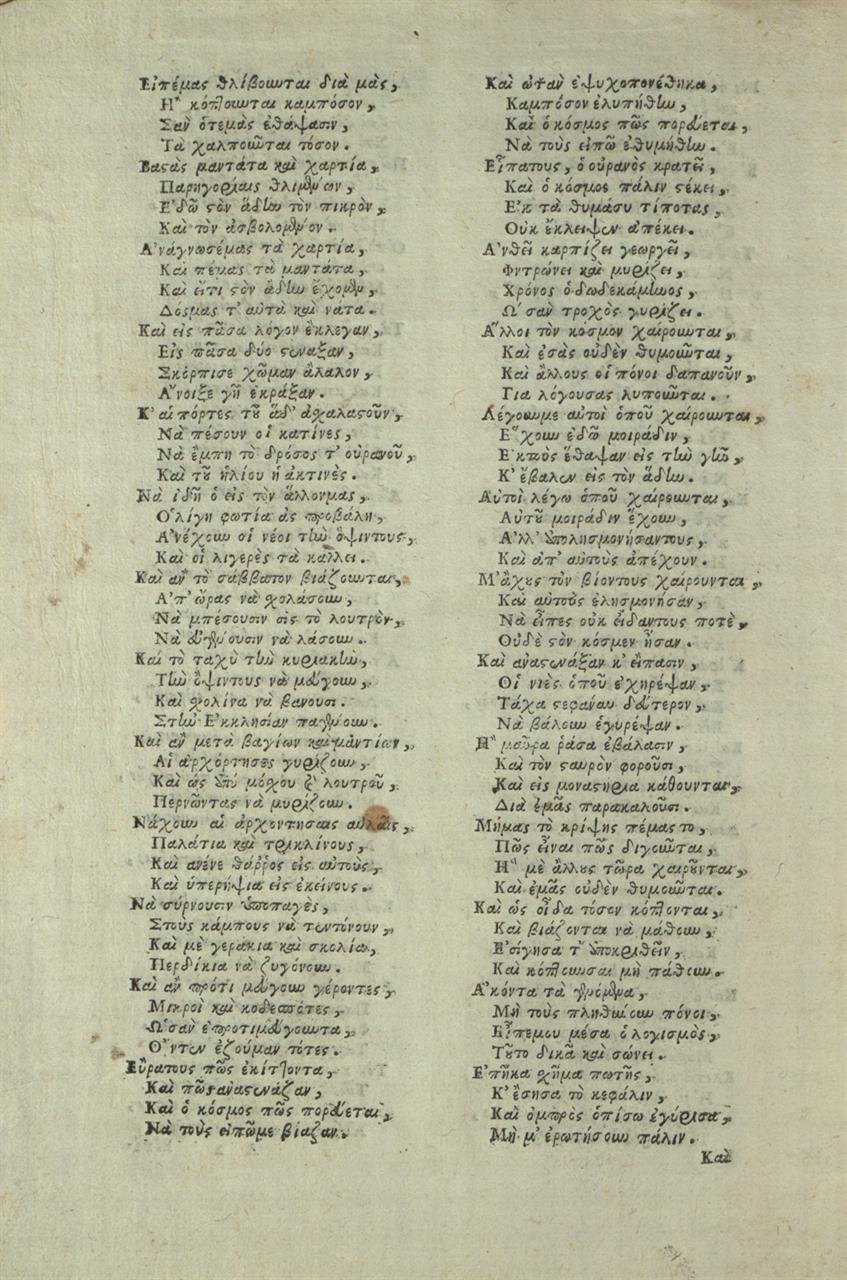 Εἰπέμας θλίβουνται διὰ μᾶς,
Ἢ κόπτουνται καμπόσον,
Σὰν ὁτεμᾶς ἐθάψασιν,
Τὰ χαλποιῶνται τόσον.
Βαςᾶς μαντάτα καὶ χαρτία,
Παρηγορίαις θλιμμένων,
Ἐδῶ ςὸν ἅδην τὸν πικρὸν,
Καὶ τὸν ἀσβολομένον.
Ἀνάγνωσέμας τὰ χαρτία,
Καὶ πέμας τὰ μαντάτα,
Καὶ εἴτι ςὸν ἅδην ἔχομεν,
Δόςμας τ' αὐτὰ καὶ νάτα.
Καὶ εἰς πᾶσα λόγον ἔκλεγαν,
Εἰς πᾶσα δύο ςέναξαν,
Σκόρπισε χῶμαν ἄλαλον,
Ἄνοιξε γῆ ἐκράξαν.
Κ' αἱ πόρτες τοῦ ἅδ' ἀχαλαςοῦν,
Νὰ πέσουν οἱ κατίνες,
Νὰ ἔμπη τὸ δρόσος τ' οὐρανοῦ,
Καὶ τοῦ ἡλίου ἡ ἀκτινὲς.
Νὰ ἰδῆ ὁ εἰς τὸν ἄλλονμας,
Ὀλίγη φωτία ἀς προβάλη,
Ἀνέχουν οἱ νέοι τὴν ὄψιντους,
Καὶ οἱ λιγερὲς τὰ κάλλει.
Καὶ ἂν τὸ σάββατον βιάζουνται,
Ἀπ' ὥρας νὰ χολάσουν,
Νὰ μπέσουσιν εἰς τὸ λουτρὸν,
Νὰ εὐγένουσιν νὰ λάσουν.
Καὶ τὸ ταχὺ τὴν κυριακὴν,
Τὴν ὄψιντους νὰ μεύγουν,
Καὶ χολίνα νὰ βάνουσι.
Στὴν Ἐκκλησίαν παγένουν.
Καὶ ἂν μετὰ βαγίων καὶ μαντίων,
Αἱ ἀρχόρτησες γυρίζουν,
Καὶ ὡς ὑπὸ μόχου ἢ λουτροῦ,
Περνῶντας νὰ μυρίζουν.
Νάχουν αἱ ἀρχοντησαις αὐλαῖς,
Παλάτια καὶ τρικλίνους,
Καὶ ἀνένε θάῤῥος εἰς αὐτοὺς,
Καὶ ὑπερήψια εἰς ἐκείνους.
Νὰ σύρνουσιν ὑποπαγὲς,
Στοὺς κάμπους νὰ τεντόνουν,
Καὶ μὲ γεράκια καὶ σκολία,
Περδίκια νὰ ζυγόνουν.
Καὶ ἂν πρότι μεύγουν γέροντες,
Μικροὶ καὶ κοδεσπότες,
Ὡσὰν ἐπροτιμεύγουντα,
Ὄντεν ἐζούμαν τότες.
Εὕρατους πῶς ἐκίτζοντα,
Καὶ πῶς ἀναςενάζαν,
Καὶ ὁ κόσμος πῶς πορεύεται,
Νὰ τοὺς εἰπῶμε βιαζαν.
Καὶ ὥταν ἐψυχοπονέθηκα,
Καμπόσον ἐλυπήθην,
Καὶ ὁ κόσμος πῶς πορεύεται,
Νὰ τοὺς εἰπῶ ἐθυμήθην.
Εἶπατους, ὁ οὐρανὸς κρατεῖ,
Καὶ ὁ κόσμος πάλιν ςέκει,
Ἐκ τὰ θυμάσυ τίποτας,
Οὐκ ἔκλειψεν ἀπέκει.
Ἀνθεῖ καρπίζει γεωργεῖ,
Φυτρώνει καὶ μυρίζει,
Χρόνος ὁ δωδεκάμηνος,
Ὡσὰν τροχὸς γυρίζει.
Ἄλλοι τὸν κόσμον χαίρουνται,
Καὶ ἐσᾶς οὐδὲν θυμοιῶνται,
Καὶ ἄλλους οἱ πόνοι δαπανοῦν,
Γιὰ λόγουσας λυποιῶνται.
Λέγουμε αὐτοὶ ὁποῦ χαίρουνται,
Ἔχουν ἐδῶ μοιράδιν,
Ἐκποὺς ἔθαψαν εἰς τὴν γῆν,
Κ' ἔβαλεν εἰς τὸν ἅδην.
Αὐτοὶ λέγω ὁποῦ χαίρουνται,
Αὐτοῦ μοιράδιν ἔχουν,
Ἀλλ' ὑπολησμονήσαντους,
Καὶ ἀπ' αὐτοὺς ἀπέχουν.
Μ'ἄχυς τὸν βίοντους χαίρουνται,
Καὶ αὐτοὺς ἐλησμονήσαν,
Νὰ εἶπες οὐκ εἶδαντους ποτὲ,
Οὐδὲ ςὸν κόσμεν ἦσαν.
Καὶ ἀναςενάξαν κ' εἴπασιν,
Οἱ νιὲς ὁποῦ ἐχηρέψαν,
Τάχα ςεφάνου δεύτερον,
Νὰ βάλουν ἐγυρέψαν.
Ἢ μαῦρα ῥάσα ἐβάλασιν,
Καὶ τὸν ςαυρὸν φοροῦσι,
Καὶ εἰς μοναςήρια κάθουνται,
Διὰ ἐμᾶς παρακαλοῦσι.
Μήμας τὸ κρίψης πέμαςτο,
Πῶς εἶναι πῶς διγοιῶνται,
Ἢ μὲ ἄλλους τῶρα χαίρουνται,
Καὶ ἐμᾶς οὐδὲν θυμοιῶνται.
Καὶ ὡς οἶδα τόσον κόπτονται,
Καὶ βιάζονται νὰ μάθουν,
Ἐσίγησα τ' ὑποκριθεῖν,
Καὶ κόπτουνσαι μὴ πάθουν.
Ἀκόντα τὰ γενόμενα,
Μὴ τοὺς πληθαίνουν πόνοι,
Εἶπεμου μέσα ὁ λογισμὸς,
Τοῦτο δικᾶ καὶ σώνει.
Ἐπῆκα χῆμα πωτῆς,
Κ' ἔσησα τὸ κεφάλιν,
Καὶ ὀμπρὸς ὀπίσω ἐγύρισα,
Μὴ μ' ἐρωτήσουν πάλιν.
Καὶ